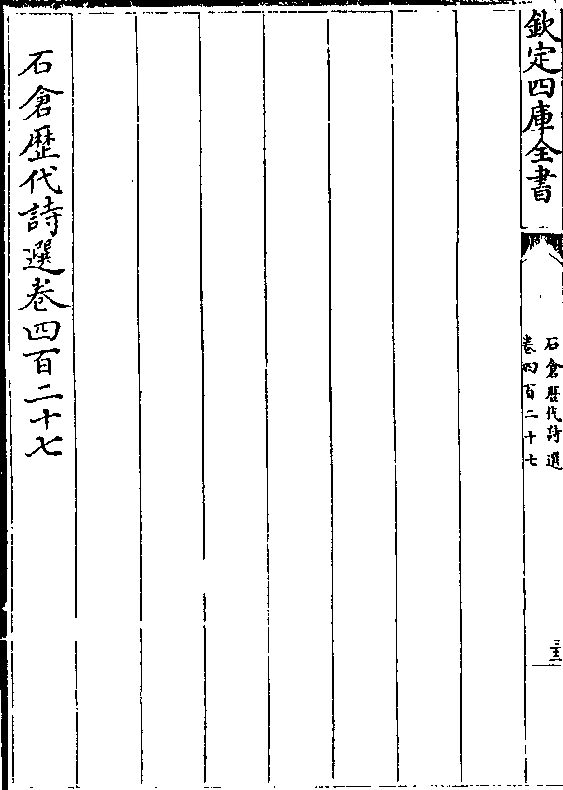 欽定四庫全書
石倉歴代詩選
卷四百二十七
石倉歴代詩選卷四百二十七